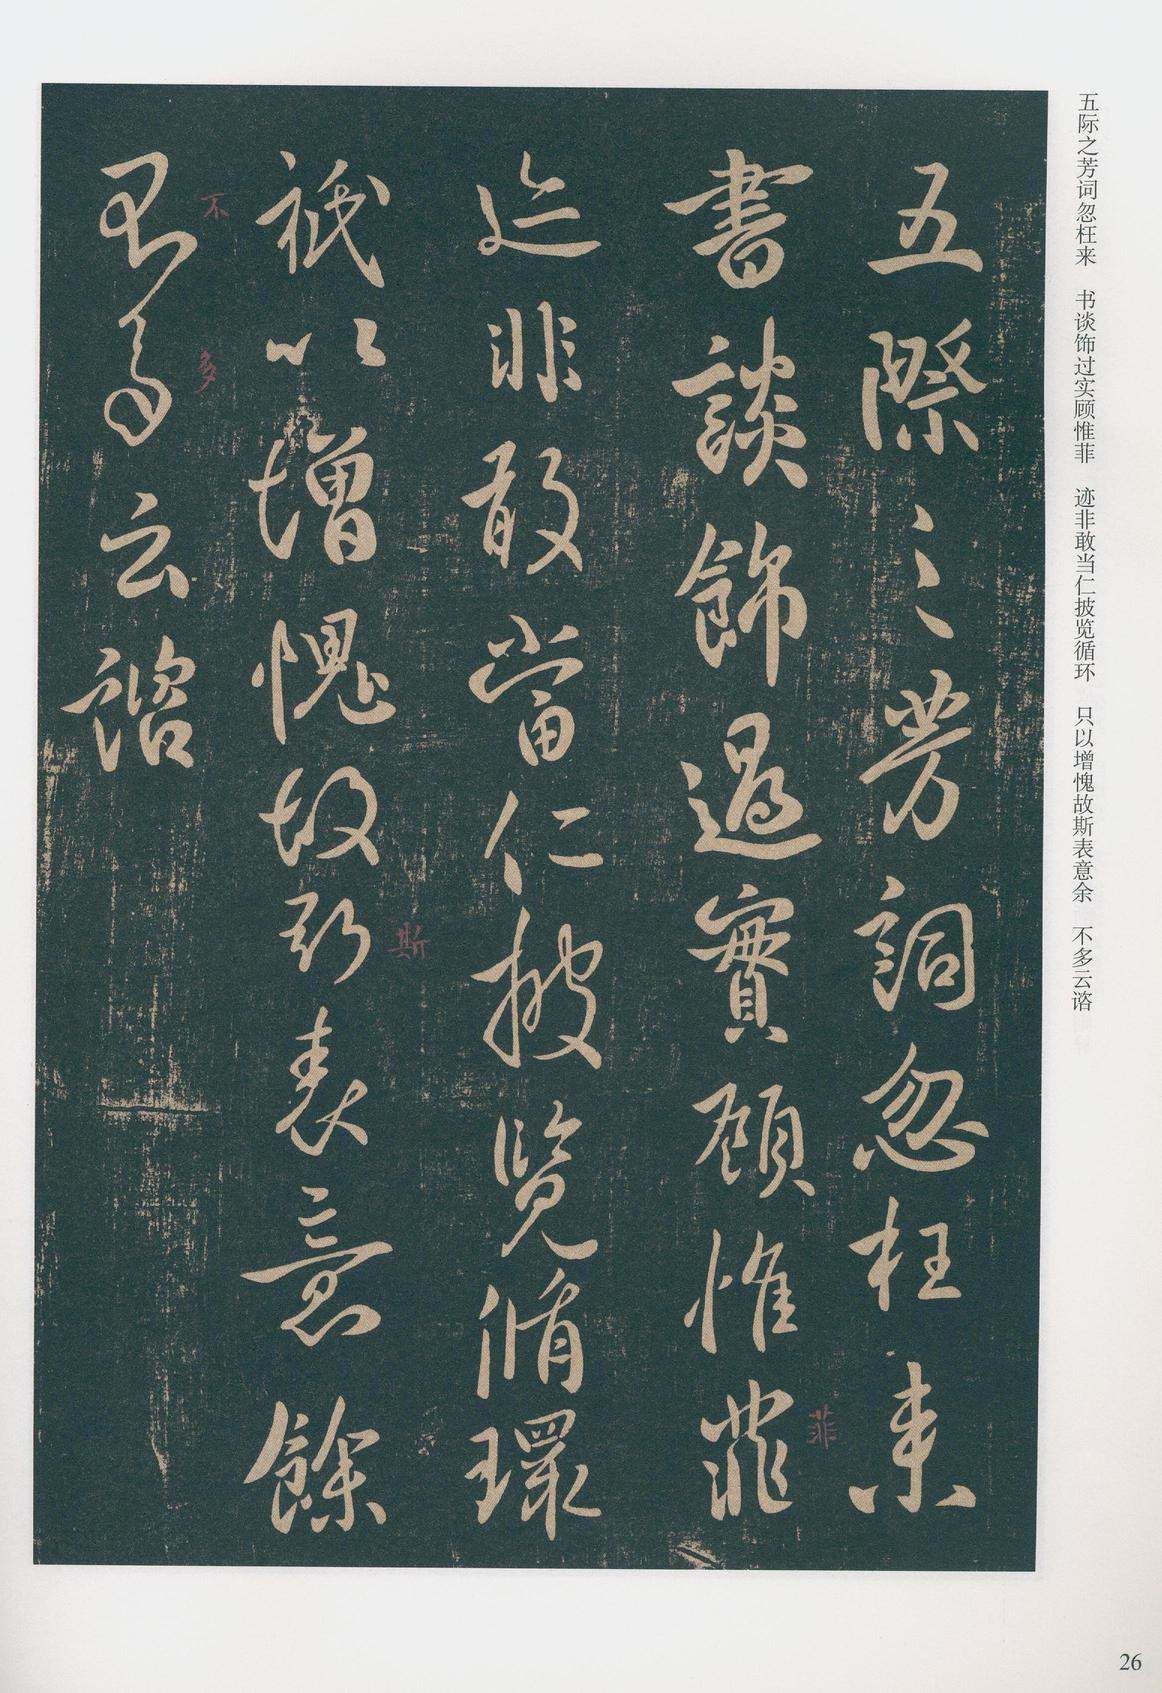 五际之芳词忽枉来　书谈饰过实顾惟菲　迹非敢当仁披览循环　只以增愧故斯表意余　不多云谘
五際之芳詞忽枉来
書談飾過實顧惟菲
菲
迹非敢當仁披覽循環
祇以增愧故斯表意餘
斯
不多云諮
不
多
26